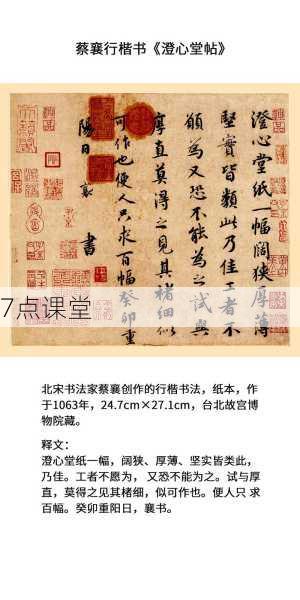 蔡襄行楷书《澄心堂帖》
澄心堂纸一幅阔狭厚薄
坚实皆类此乃佳工者不
愿为又恐不能为之试与
厚直莫得之见其楮细似
可作也便人只求百幅癸卯重
阳日襄书
7点课堂
北宋书法家蔡襄创作的行楷书法，纸本，作
于1063年，24.7cm×27.1cm，台北故宫博
物院藏。
释文：
澄心堂纸一幅，阔狭、厚薄、坚实皆类此，
乃佳。工者不愿为， 又恐不能为之。试与厚
直，莫得之见其楮细，似可作也。便人只 求
百幅。癸卯重阳日，襄书。